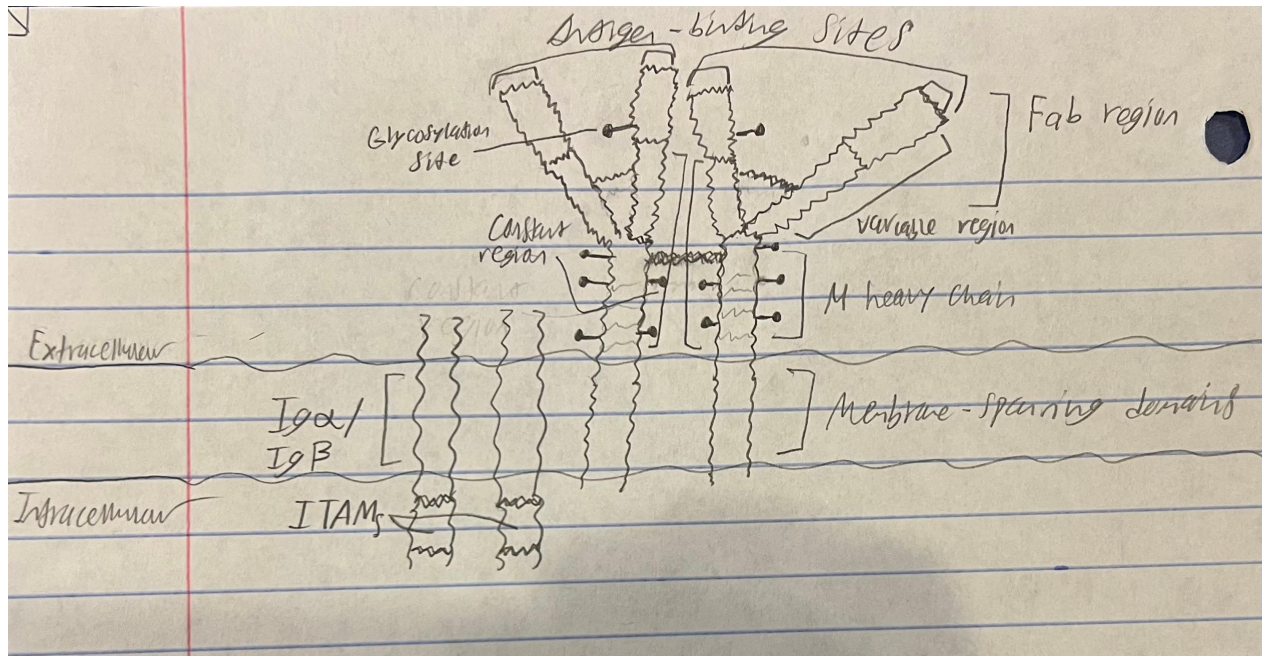 Antigen-binding sites
Fab region
Glycosylation
site
Constant
region
variable region
M heavy chain
constant
region
Extracellular
Igα/
Igβ
Membrane-spanning domains
Intracellular
ITAMs